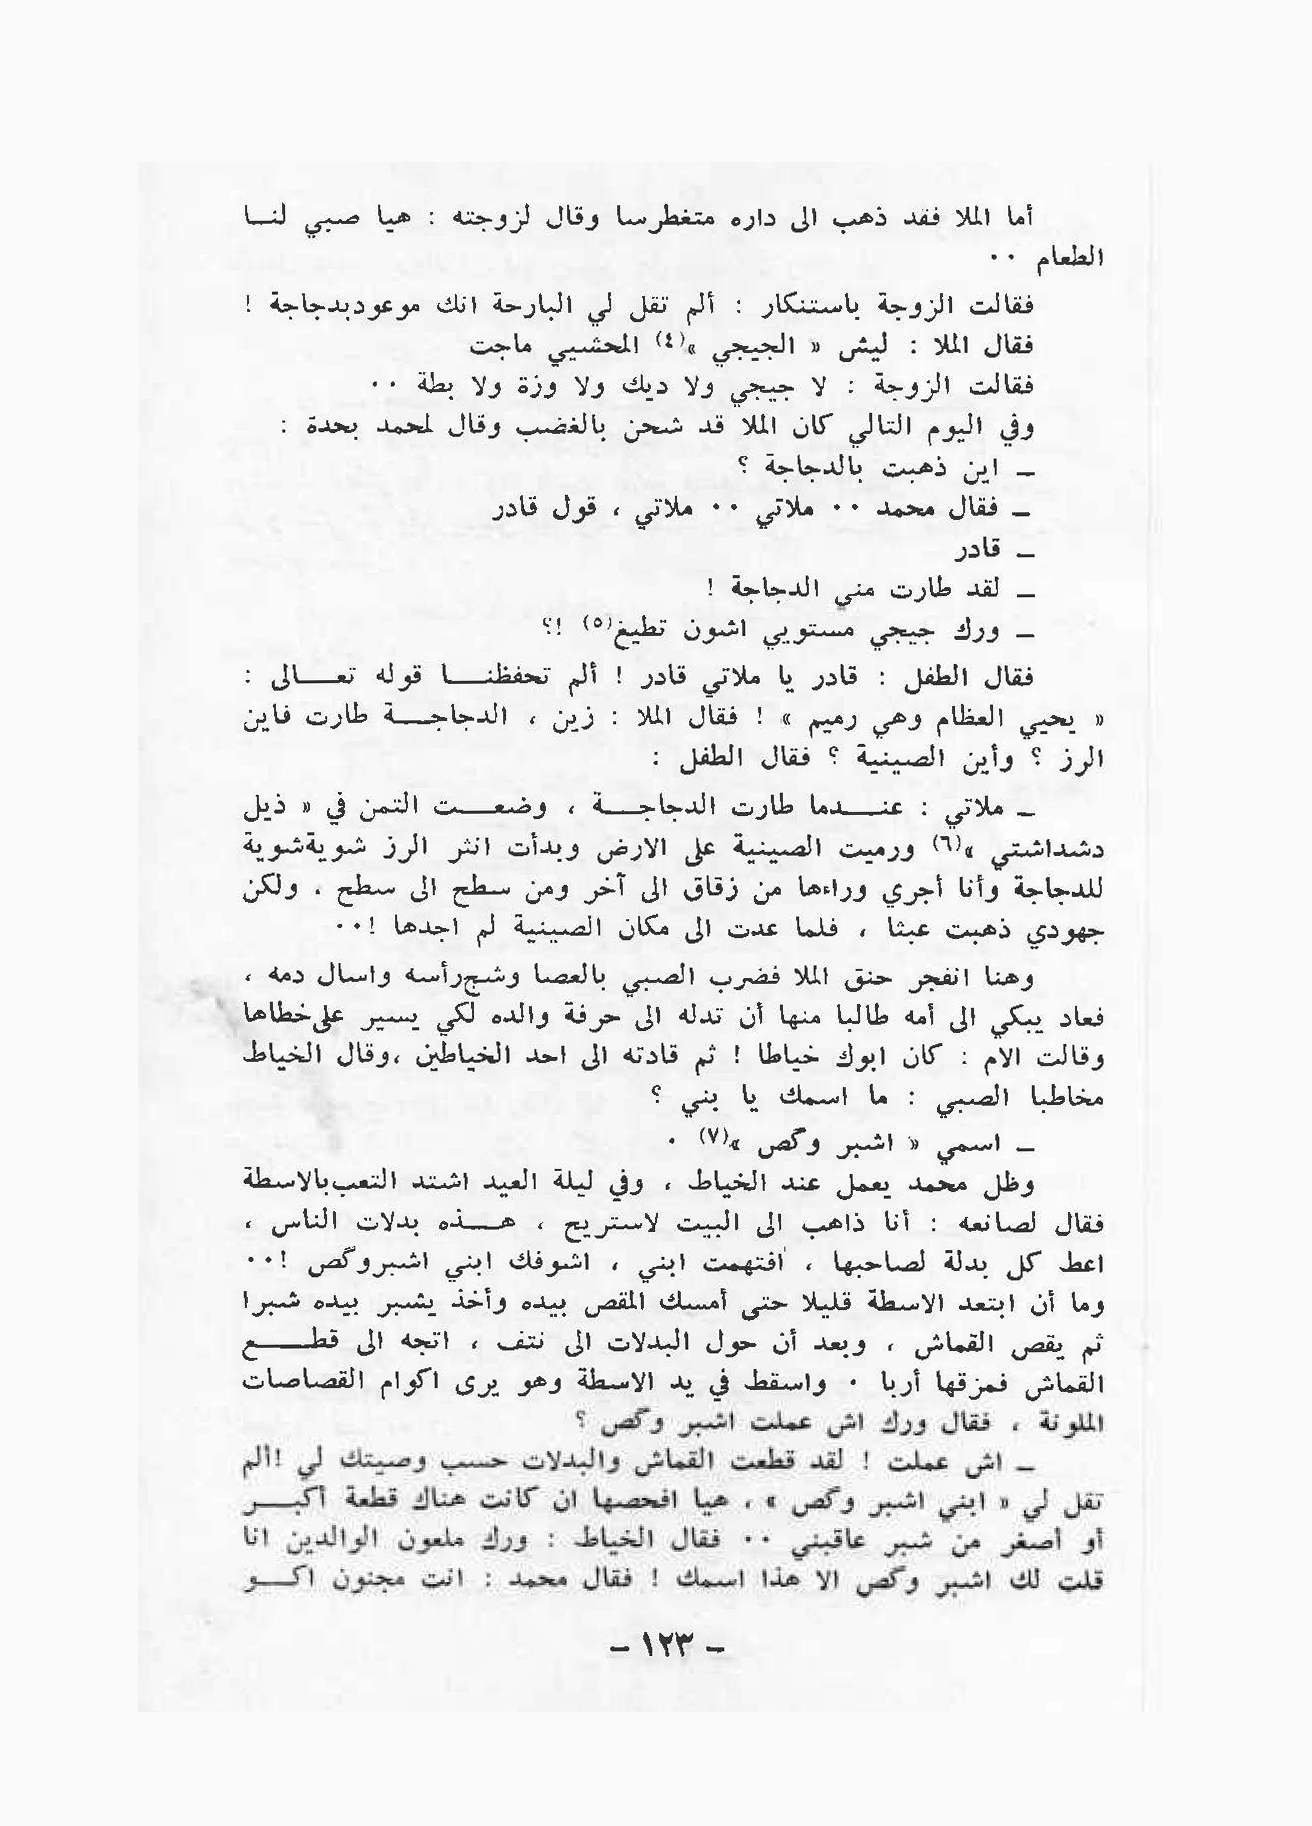 أما الملا فقد ذهب الى داره متغطرسا وقال لزوجته : هيا صبي لنـــا
الطعام ٠٠
فقالت الزوجة باستنكار : ألم تقل لي البارحة انك موعودبدجاجة !
فقال الملا : ليش « الجيجي »(٤) المحشيي ماجت
فقالت الزوجة : لا جيجي ولا ديك ولا وزة ولا بطة ٠٠
وفي اليوم التالي كان الملا قد شحن بالغضب وقال لمحمد بحدة :
ــ اين ذهبت بالدجاجة ؟
ــ فقال محمد ٠٠ ملاتي ٠٠ ملاتي ، قول قادر
ــ قادر
ــ لقد طارت مني الدجاجة !
ــ ورك جيجي مستويي اشون تطيغ(٥) !؟
فقال الطفل : قادر يا ملاتي قادر ! ألم تحفظنـــا قوله تعـــالى :
« يحيي العظام وهي رميم » ! فقال الملا : زين ، الدجاجـــة طارت فاين
الرز ؟ وأين الصينية ؟ فقال الطفل :
ــ ملاتي : عنـــدما طارت الدجاجـــة ، وضعـــت التمن في « ذيل
دشداشتي »(٦) ورميت الصينية على الارض وبدأت انثر الرز شويةشوية
للدجاجة وأنا أجري وراءها من زقاق الى آخر ومن سطح الى سطح ، ولكن
جهودي ذهبت عبثا ، فلما عدت الى مكان الصينية لم اجدها !٠٠
وهنا انفجر حنق الملا فضرب الصبي بالعصا وشج‌رأسه واسال دمه ،
فعاد يبكي الى أمه طالبا منها أن تدله الى حرفة والده لكي يسير على‌خطاها
وقالت الام : كان ابوك خياطا ! ثم قادته الى احد الخياطين ،وقال الخياط
مخاطبا الصبي : ما اسمك يا بني ؟
ــ اسمي « اشبر وگص »(٧) ٠
وظل محمد يعمل عند الخياط ، وفي ليلة العيد اشتد التعب‌بالاسطة
فقال لصانعه : أنا ذاهب الى البيت لاستريح ، هـــذه بدلات الناس ،
اعط كل بدلة لصاحبها ، افتهمت ابني ، اشوفك ابني اشبروگص !٠٠
وما أن ابتعد الاسطة قليلا حتى أمسك المقص بيده وأخذ يشبر بيده شبرا
ثم يقص القماش ، وبعد أن حول البدلات الى نتف ، اتجه الى قطـــع
القماش فمزقها أربا ٠ واسقط في يد الاسطة وهو يرى اكوام القصاصات
الملونة ، فقال ورك اش عملت اشبر وگص ؟
ــ اش عملت ! لقد قطعت القماش والبدلات حسب وصيتك لي !ألم
تقل لي « ابني اشبر وگص » ، هيا افحصها ان كانت هناك قطعة أكبـــر
أو أصغر من شبر عاقبني ٠٠ فقال الخياط : ورك ملعون الوالدين انا
قلت لك اشبر وگص الا هذا اسمك ! فقال محمد : انت مجنون اكـــو
ــ ١٢٣ ــ